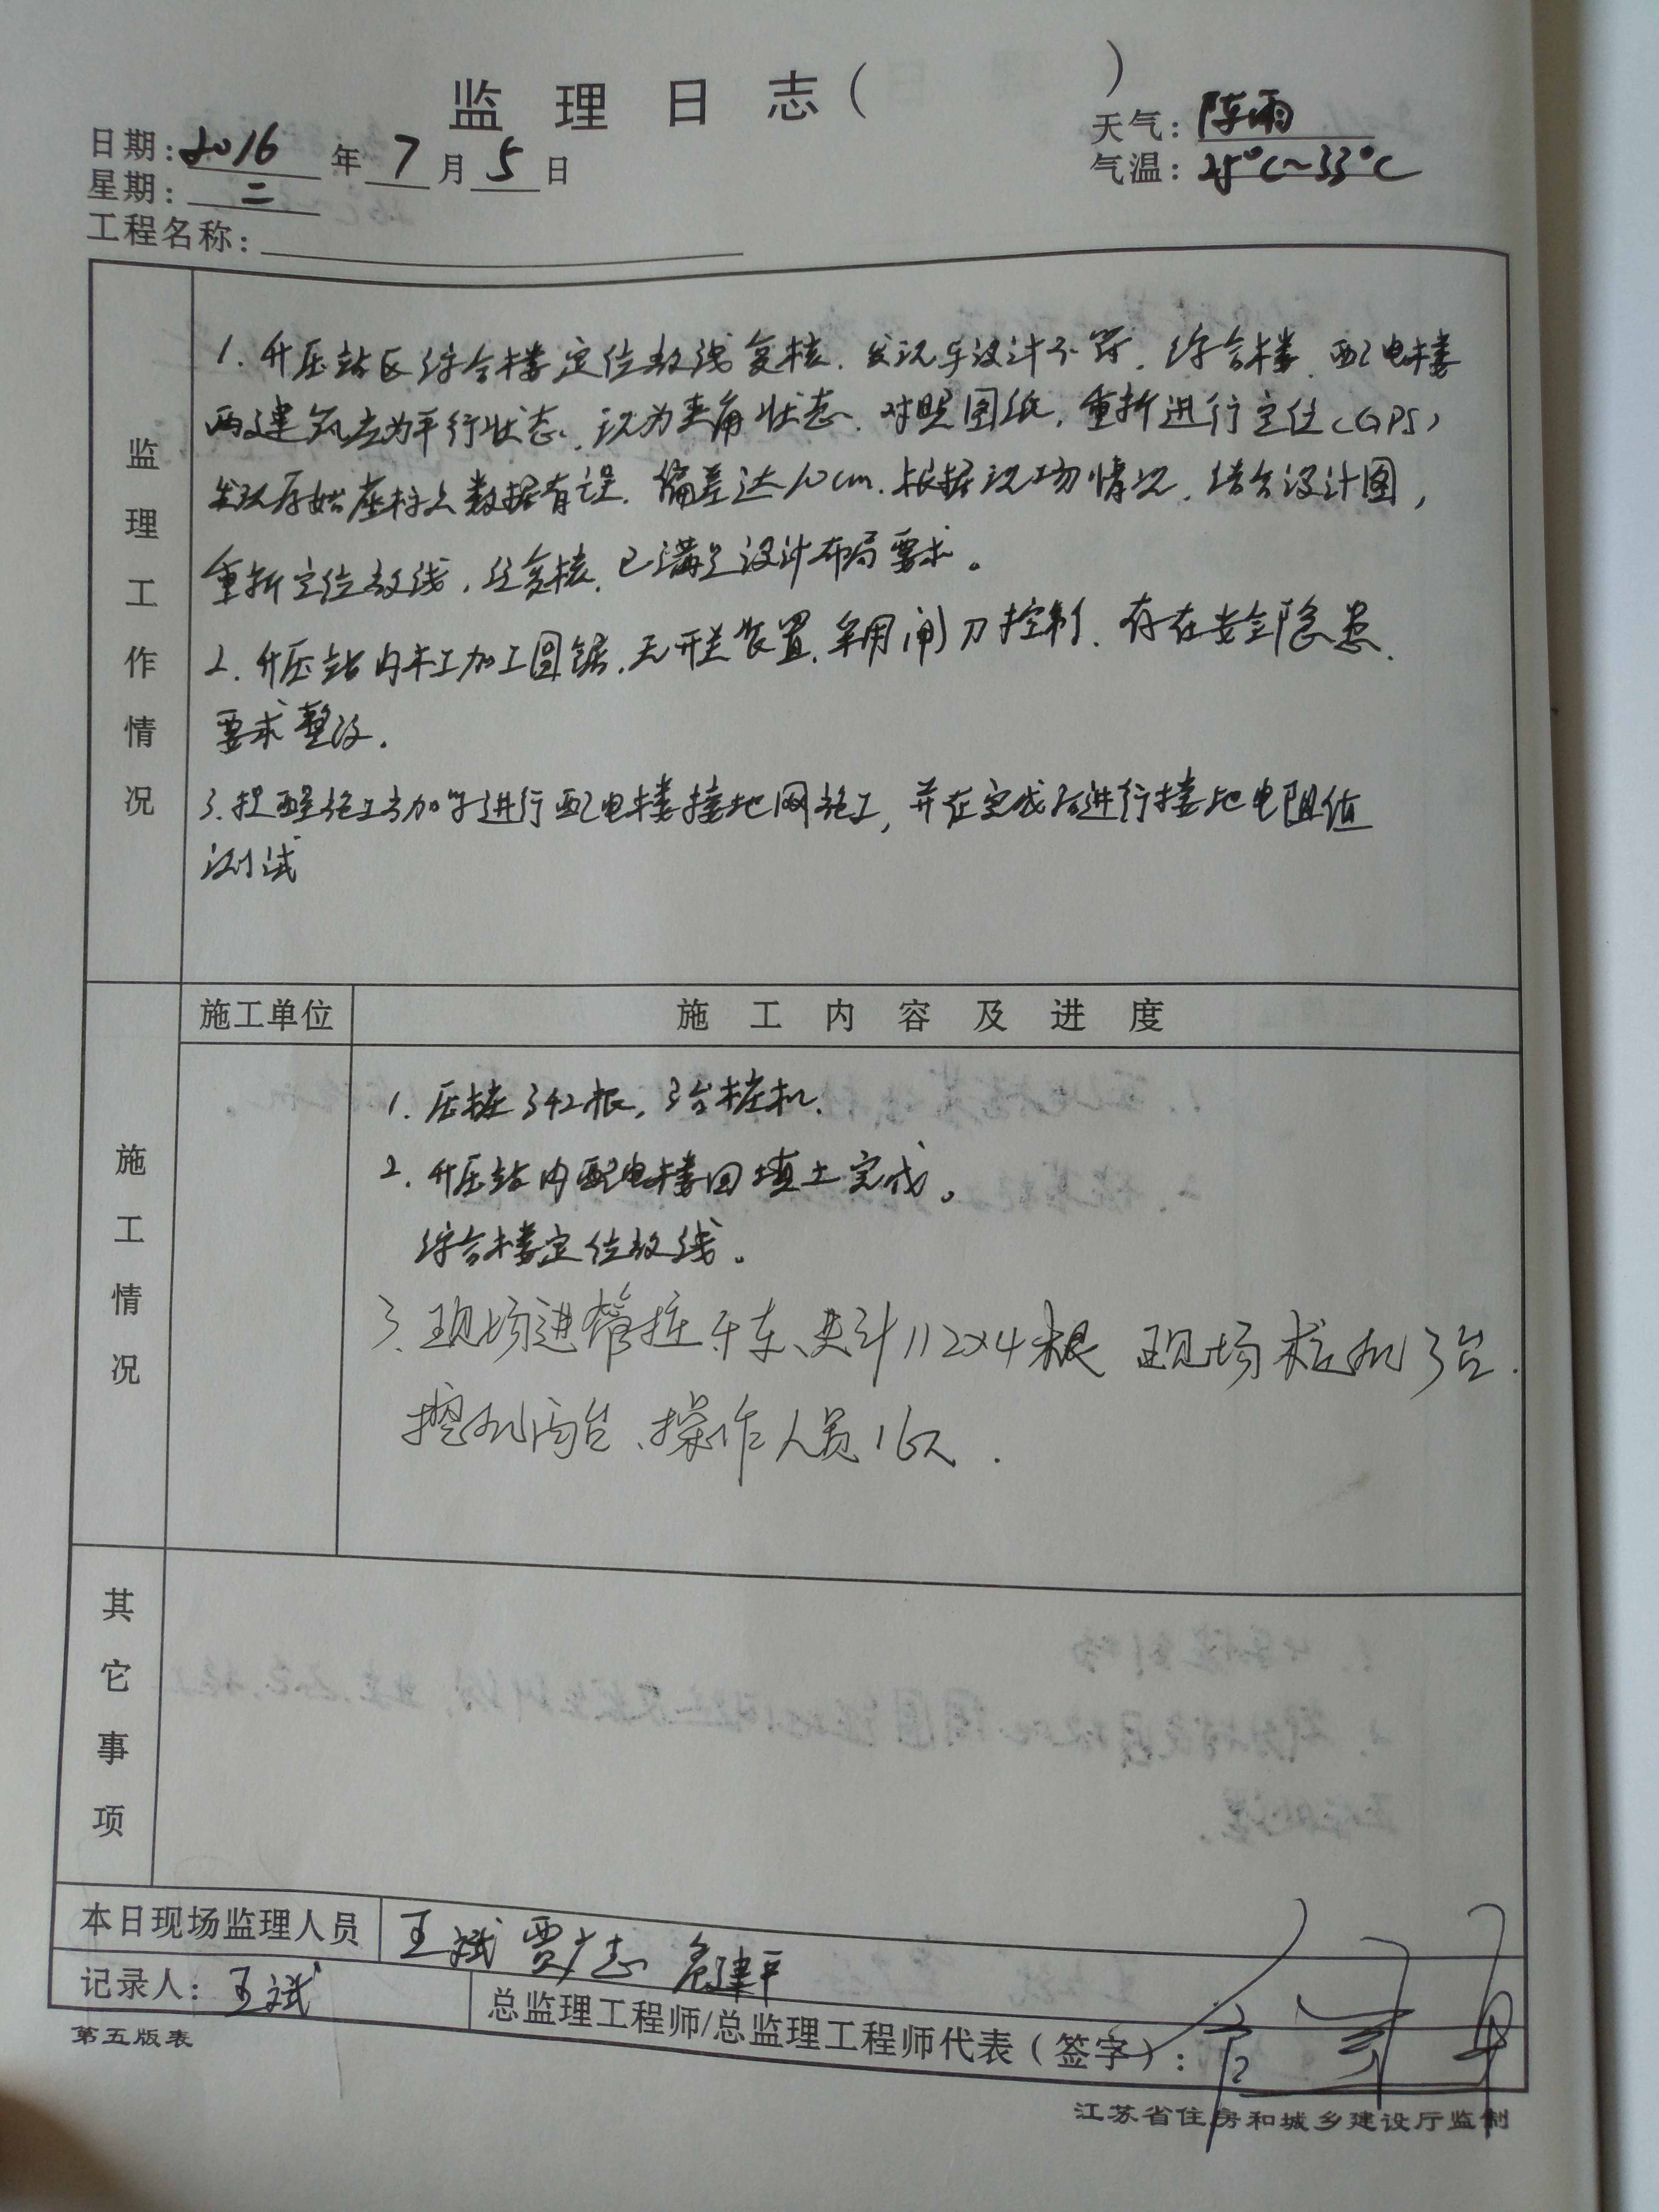 监理日志( )
日期: 2016 年 7 月 5 日
天气: 阵雨
星期: 二
气温: 25°C~33°C
工程名称:
监理工作情况
1. 升压站区综合楼定位放线复核. 发现与设计不符. 综合楼. 配电楼
两建筑应为平行状态. 现为夹角状态. 对照图纸. 重新进行定位(GPS)
发现原始座标点数据有误. 偏差达10cm. 根据现场情况. 结合设计图,
重新定位放线. 经复核. 已满足设计布局要求。
2. 升压站内木工加工圆锯. 无开关装置. 采用闸刀控制. 存在安全隐患.
要求整改.
3. 提醒施工方加紧进行配电楼接地网施工, 并在完成后进行接地电阻值
测试
施工情况
施工单位
施工内容及进度
1. 压桩342根, 3台桩机.
2. 升压站内配电楼回填土完成。
综合楼定位放线。
3. 现场进管桩 车、共计112×4根 现场桩机3台.
挖机两台、操作人员16人.
其它事项
本日现场监理人员 王斌 贾广志 建平
记录人: 王斌
总监理工程师/总监理工程师代表(签字):
第五版表
江苏省住房和城乡建设厅监制